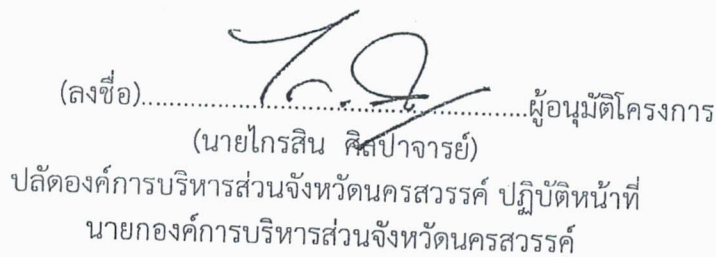 (ลงชื่อ)..........................................................ผู้อนุมัติโครงการ
(นายไกรสิน ศิลปาจารย์)
ปลัดองค์การบริหารส่วนจังหวัดนครสวรรค์ ปฏิบัติหน้าที่
นายกองค์การบริหารส่วนจังหวัดนครสวรรค์